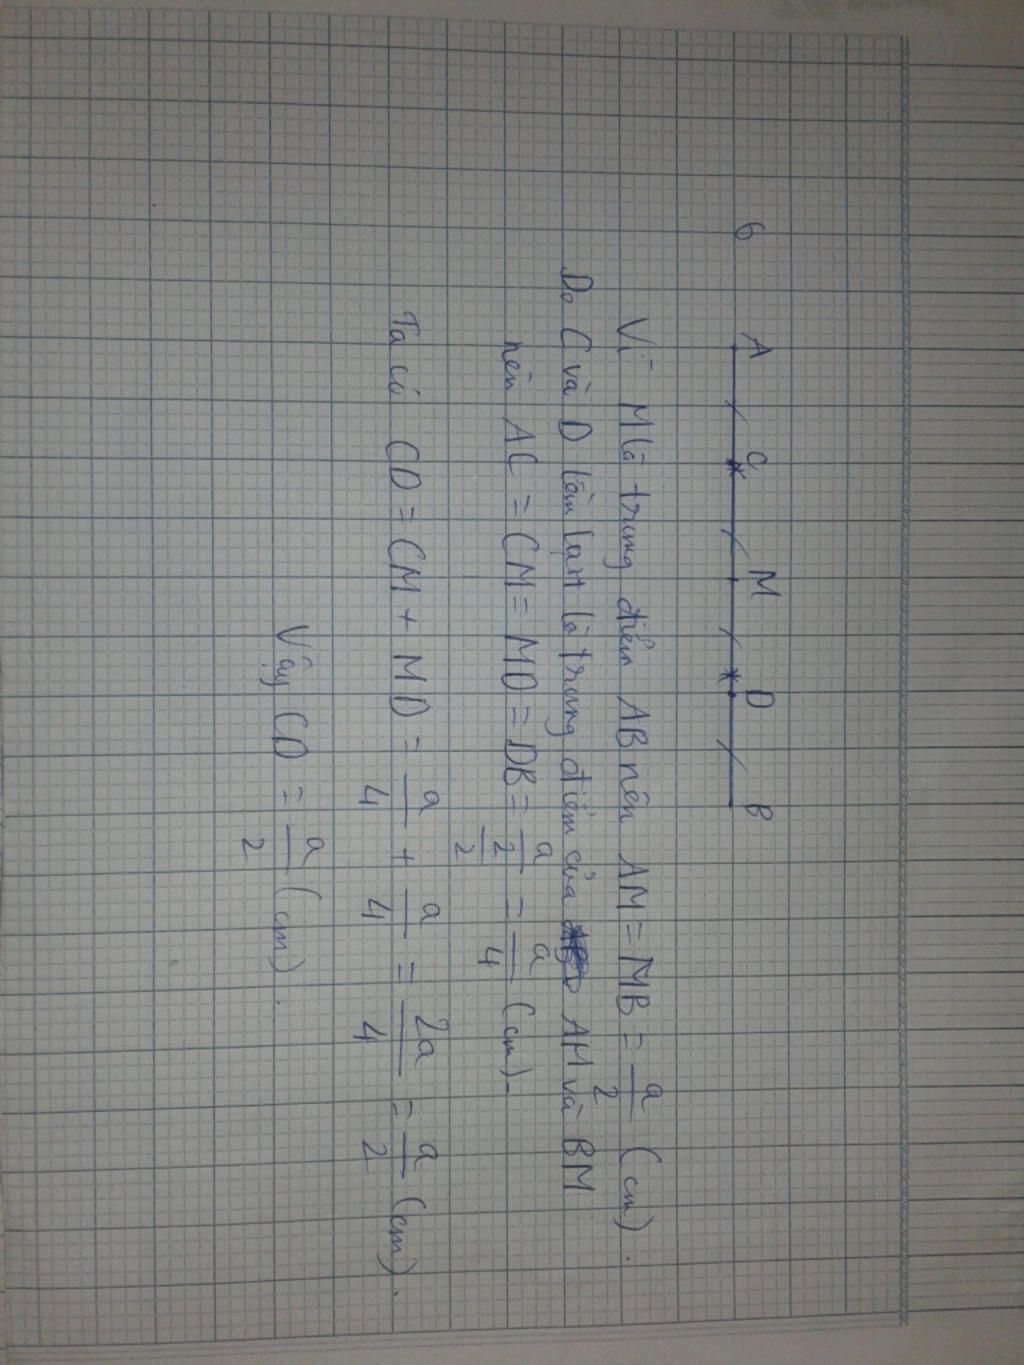 6
A C M D B
Vì M là trung điểm AB nên AM = MB = a/2 (cm).
Do C và D lần lượt là trung điểm của AM và BM
nên AC = CM = MD = DB = a/2/2 = a/4 (cm).
Ta có CD = CM + MD = a/4 + a/4 = 2a/4 = a/2 (cm).
Vậy CD = a/2 (cm).